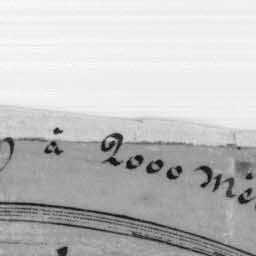 à 2000 Mè